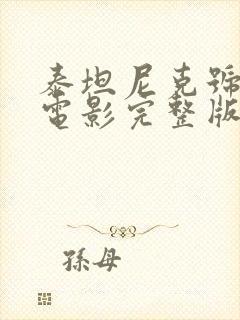 泰坦尼克號
電影完整版
孫母